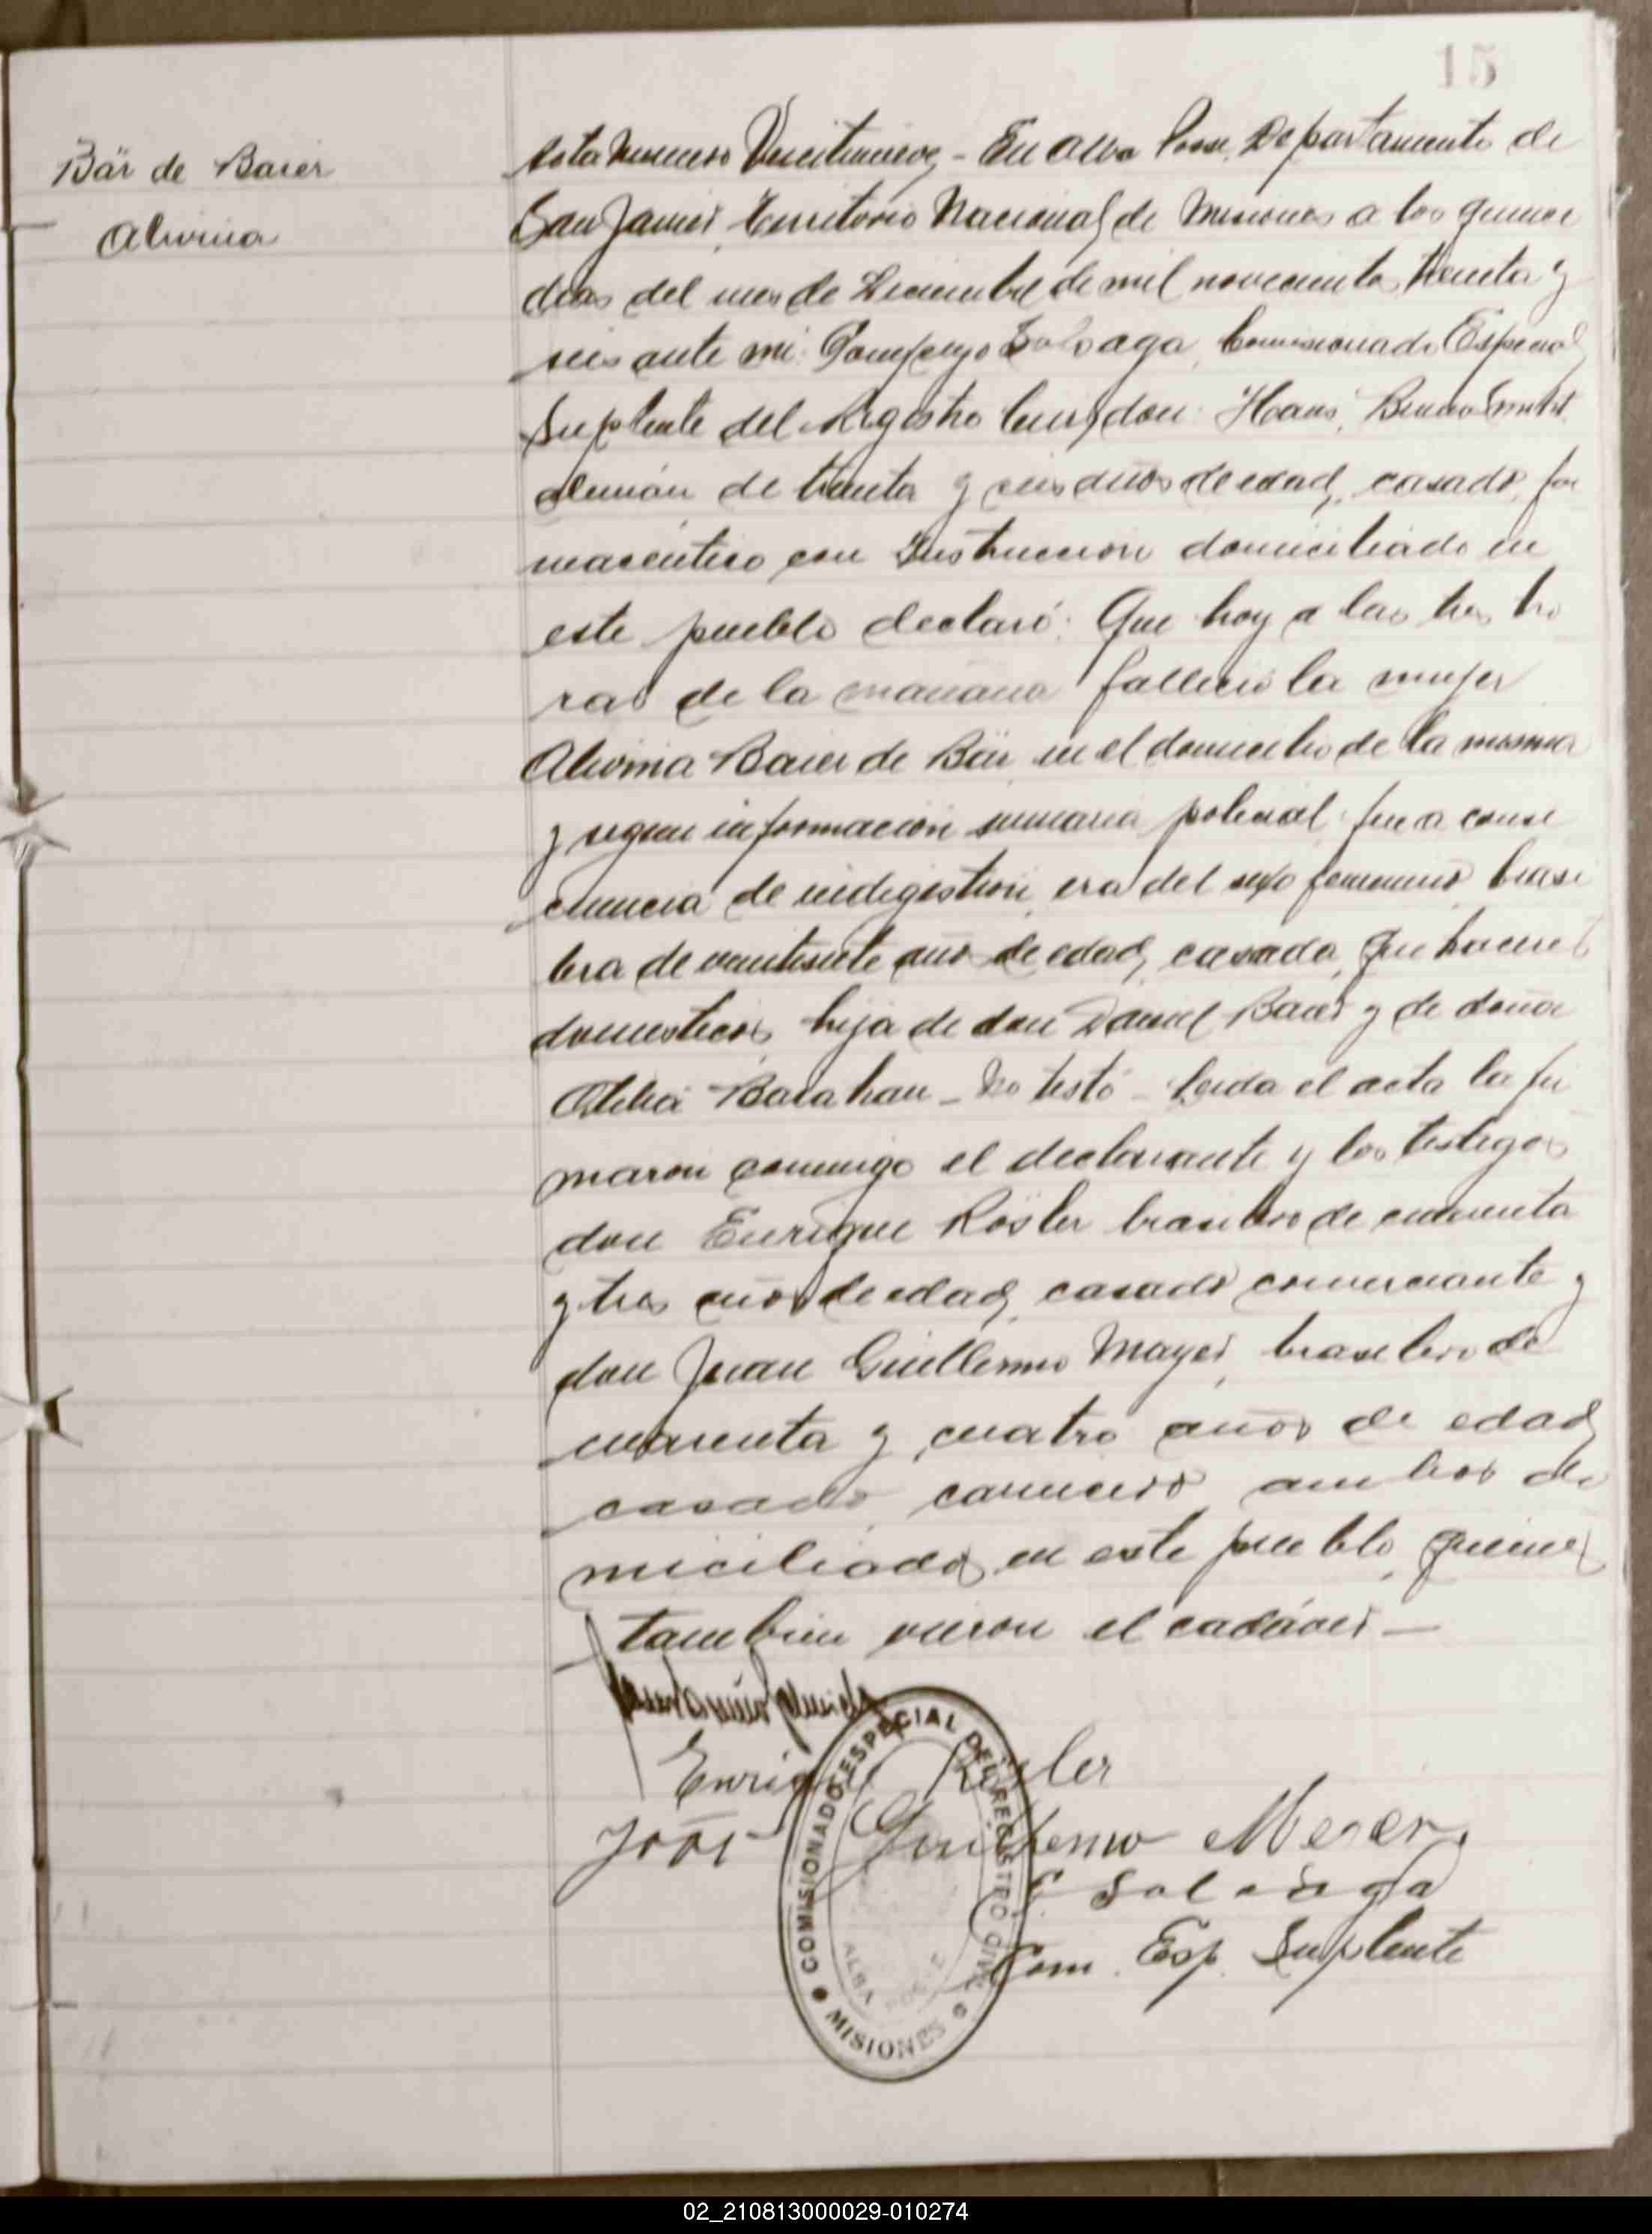 15
Bär de Baier
Alwina
Acta número Veintinueve,- En Alba Posse, Departamento de
San Javier, Territorio Nacional de Misiones a los quince
dias del mes de Diciembre de mil novecientos treinta y
seis ante mi: Pompeyo Salvaga, Comisionado Especial
Suplente del Registro Civil, don: Hans, Bruno
alemán de treinta y seis años de edad, casado, far
maceutico con Instruccion domiciliado en
este pueblo declaró: Que hoy a las tres ho
ras de la mañana fallecio la mujer
Alwina Baier de Bär en el domicilio de la misma
y segun informacion sumaria policial fue a conse
cuencia de indigestion, era del sexo femenino, brasi
lera de veintisiete años de edad, casada, quehaceres
domesticos, hija de don Daniel Baier y de doña
Otilia Barahan - No testó - Leida el acta la fir
maron conmigo el declarante y los testigos
don Enrique Rösler brasilero de cincuenta
y tres años de edad, casado comerciante y
don Juan Guillermo Mayer, brasilero de
cuarenta y cuatro años de edad,
casado carnicero ambos do
miciliados en este pueblo, quienes
tambien vieron el cadáver -
Enrique Rösler
Guilhermo Meier
P. Salvaga
Com. Esp. Suplente
COMISIONADO ESPECIAL DEL REGISTRO CIVIL
ALBA POSSE
MISIONES
02_210813000029-010274